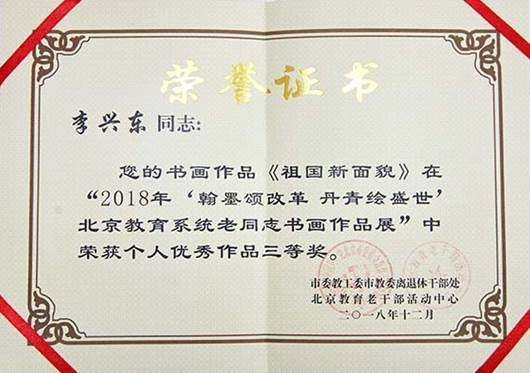 荣誉证书
李兴东 同志:
您的书画作品《祖国新面貌》在
“2018年‘翰墨颂改革 丹青绘盛世’
北京教育系统老同志书画作品展”中
荣获个人优秀作品三等奖。
市委教工委市教委离退休干部处
北京教育老干部活动中心
二〇一八年十二月